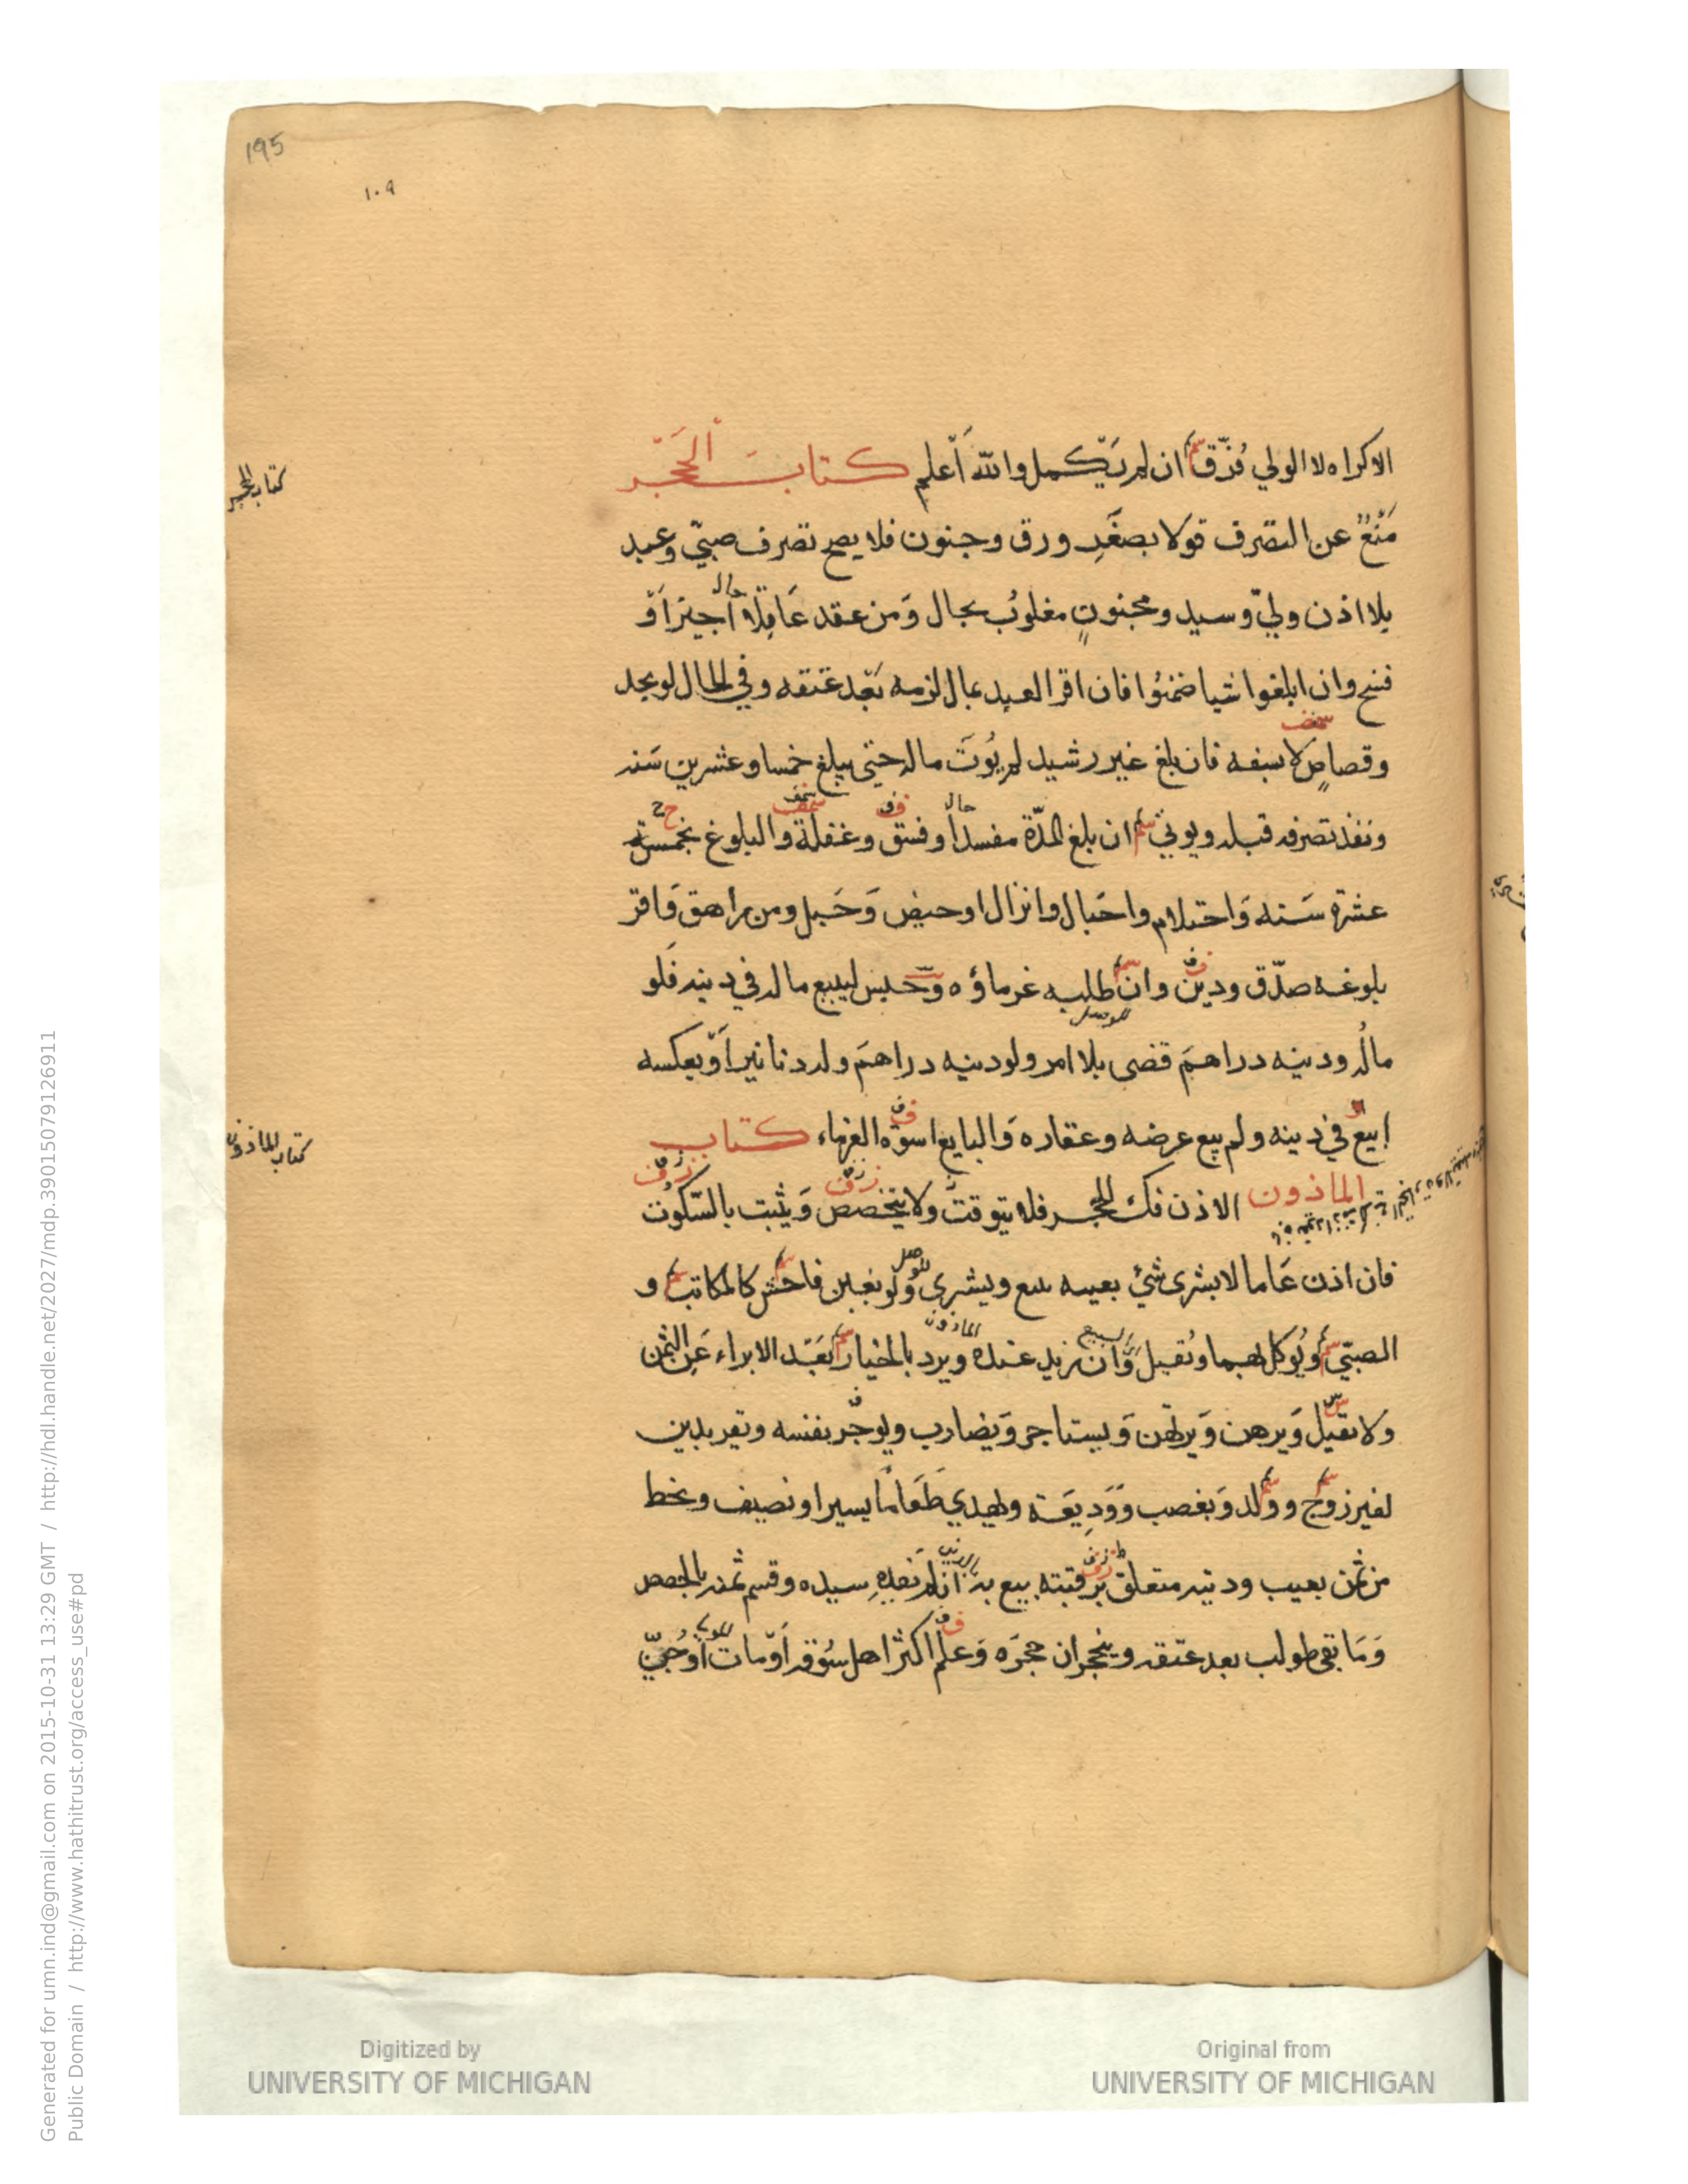 195
١٠٩
الاكراه لا الولي فُرّق ان لم يكمل والله أعلم كتاب الحجر
كتاب الحجر
مَنْعٌ عن التصرف قولا بصغر ورق وجنون فلا يصح تصرف صبيّ وعبد
بلا اذن وليّ وسيد ومجنونٍ مغلوب بحال وَمن عقد عَاقِلا أجيز أوْ
فسخ وان اتلفوا شيا ضمنُوا فان اقر العبد بمال لزمه بَعْد عتقه وفي الحال لو بحد
وقصاصٍ لا بسفه فان بلغ غير رشيد لم يُوتَ ماله حتى يبلغ خمسا وعشرين سَنه
ونفذ تصرفه قبله ويوتي ان بلغ المدّة مفسدا وفسق وغفلة والبلوغ بخمسة
عشرة سَنه وَاحتلام واحَبال وانزال او حيض وَحَبل ومن راهق وَاقر
بلوغه صدّق ودين وان طلبه غرماؤه وَحبس ليبيع ماله في دينه فلو
مالُه ودينه دراهمَ قضى بلا امر ولو دينه دراهمَ وله دنانير أوْ بعكسه
ابيع في دينه ولم يبع عرضه وعقاره وَالبايع اسوة الغرماء كتاب
كتاب الماذون
الماذون الاذن فك الحجر فلا يتوقت وَلا يتخصص وَيثبت بالسّكوت
فان اذن عَاما لا بشرى شئ بعينه يبيع ويشترى وَلو بغبن فاحش كالمكاتب و
الصبيّ ويُوكل بهما ويُقيل وَان يزيد عنده ويرد بالخيار بَعْد الابراء عَن الثمن
ولا يقيل وَيرهن وَيرتهن وَيستاجر وَيضارب ويوجّر بنفسه ويقر بدين
لغير زوج وولد وَبغصب وَوَدِيعَة ويهدي طَعَامًا يسيرا ويضيف ويحط
من ثمن بعيب ودينه متعلق برقبته بيع به ان لم يَفدِه سيده وقسم ثمنه بالحصص
وَمَا بقي طولب بعد عتقه وينحجر ان حجرَه وَعلم اكثر اهل سُوقه أوْ مات أو جُنّ
Digitized by
UNIVERSITY OF MICHIGAN
Original from
UNIVERSITY OF MICHIGAN
Generated for umn.ind@gmail.com on 2015-10-31 13:29 GMT / http://hdl.handle.net/2027/mdp.39015079126911
Public Domain / http://www.hathitrust.org/access_use#pd